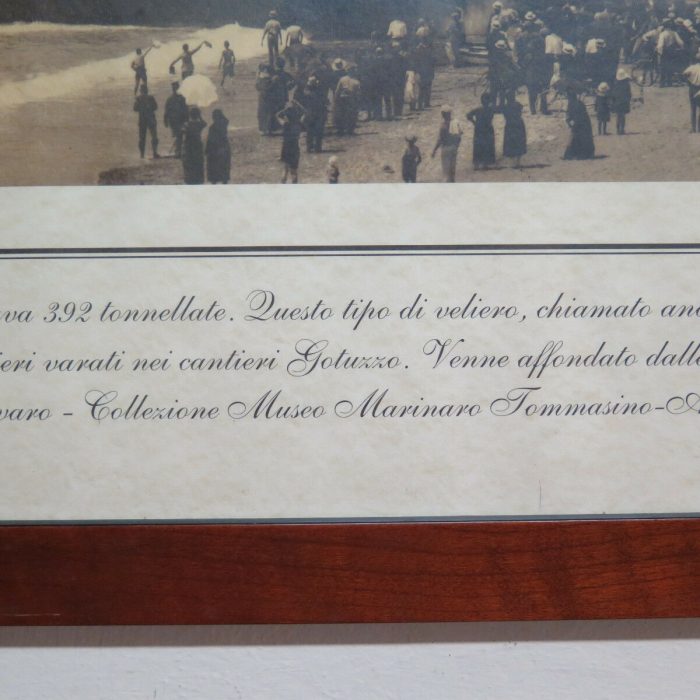 392 tonnellate. Questo tipo di veliero, chiamato
varati nei cantieri Gotuzzo. Venne affondato
- Collezione Museo Marinaro Tommasino-A